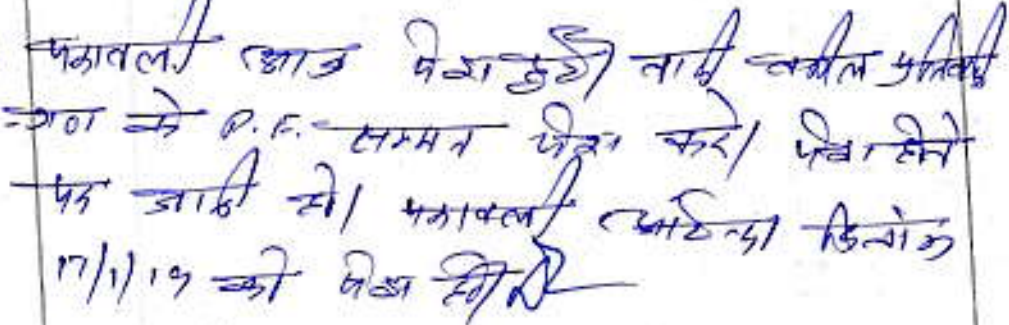 पत्रावली आज पेश हुई। वादी वकील प्रतिवादी
गण के P.F. सम्मन पेश करे। पेश होने
पर जारी हो। पत्रावली आईन्दा दिनांक
17/1/19 को पेश हो।